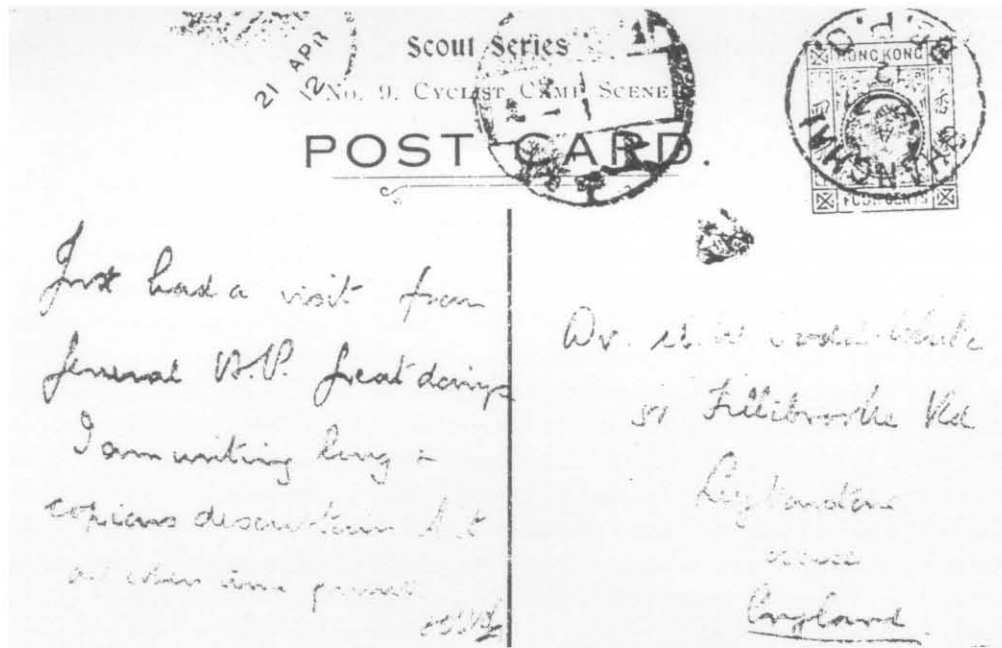 21 APR
12
Scout Series
No. 9. CYCLIST CAMP SCENE
POST CARD.
HONG KONG
SHANGHAI
FOUR CENTS
Just had a visit from
General B.P. Great doings
I am writing long &
copious description of it
all when time permit
Dr.
51 Fillibrooke Rd
Leytonstone
England